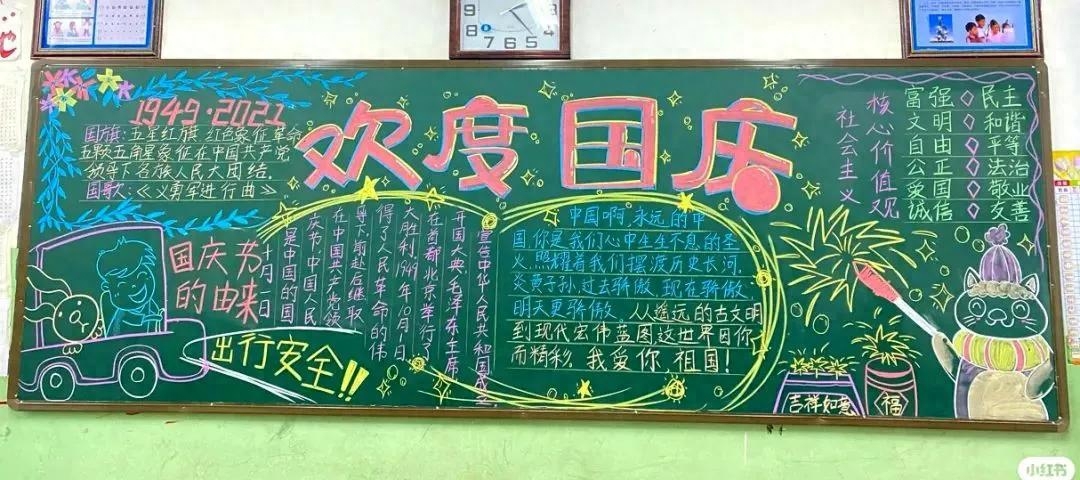 9
8 7 6 5 4
欢度国庆
1949·2021
国旗:五星红旗 红色象征革命
五颗五角星象征在中国共产党
领导下各族人民大团结。
国歌:《义勇军进行曲》
国庆节
的由来
十月一日
是中国的国
庆节,中国人民
在中国共产党领
导下,前赴后继,取
得了人民革命的伟
大胜利,1949年10月1日
在首都北京举行了
开国大典,毛泽东主席
宣告中华人民共和国成立
出行安全!!
中国啊,永远的中
国你是我们心中生生不息的圣
火,照耀着我们摆渡历史长河,
炎黄子孙,过去骄傲,现在骄傲,
明天更骄傲。从遥远的古文明
到现代宏伟蓝图这世界因你
而精彩,我爱你 祖国!
社会主义
核心价值观
富强◇民主
文明◇和谐
自由◇平等
公正◇法治
爱国◇敬业
诚信◇友善
吉祥如意
福
小红书